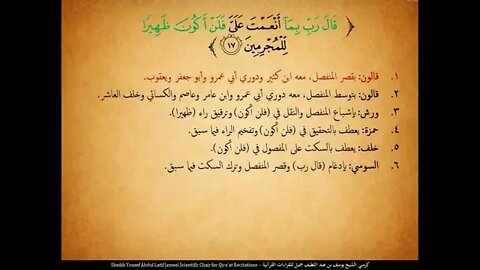 قَالَ رَبِّ بِمَآ أَنْعَمْتَ عَلَىَّ فَلَنْ أَكُونَ ظَهِيرًا
لِّلْمُجْرِمِينَ ﴿١٧﴾
١. قالون: بقصر المنفصل، معه ابن كثير ودوري أبي عمرو وأبو جعفر ويعقوب.
٢. قالون: بتوسط المنفصل، معه دوري أبي عمرو وابن عامر وعاصم والكسائي وخلف العاشر.
٣. ورش: بإشباع المنفصل والنقل في (فلن أكون) وترقيق راء (ظهيرا).
٤. حمزة: يعطف بالتحقيق في (فلن أكون) وتفخيم الراء فيما سبق.
٥. خلف: يعطف بالسكت على المفصول في (فلن أكون).
٦. السوسي: بإدغام (قال رب) وقصر المنفصل وترك السكت فيما سبق.
Sheikh Yousef Abdul Latif Jameel Scientific Chair for Qira'at Recitations - كرسي الشيخ يوسف بن عبد اللطيف جميل للقراءات القرآنية